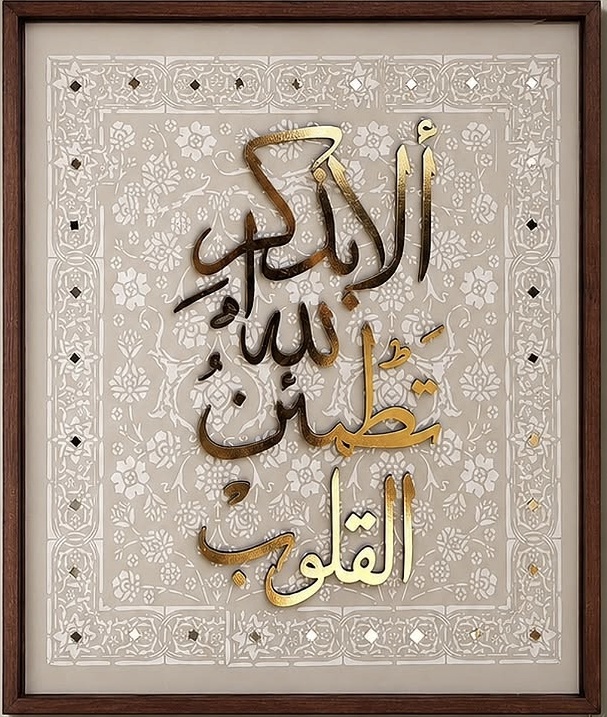 ألا بذكر
الله
تطمئنُ
القلوبْ